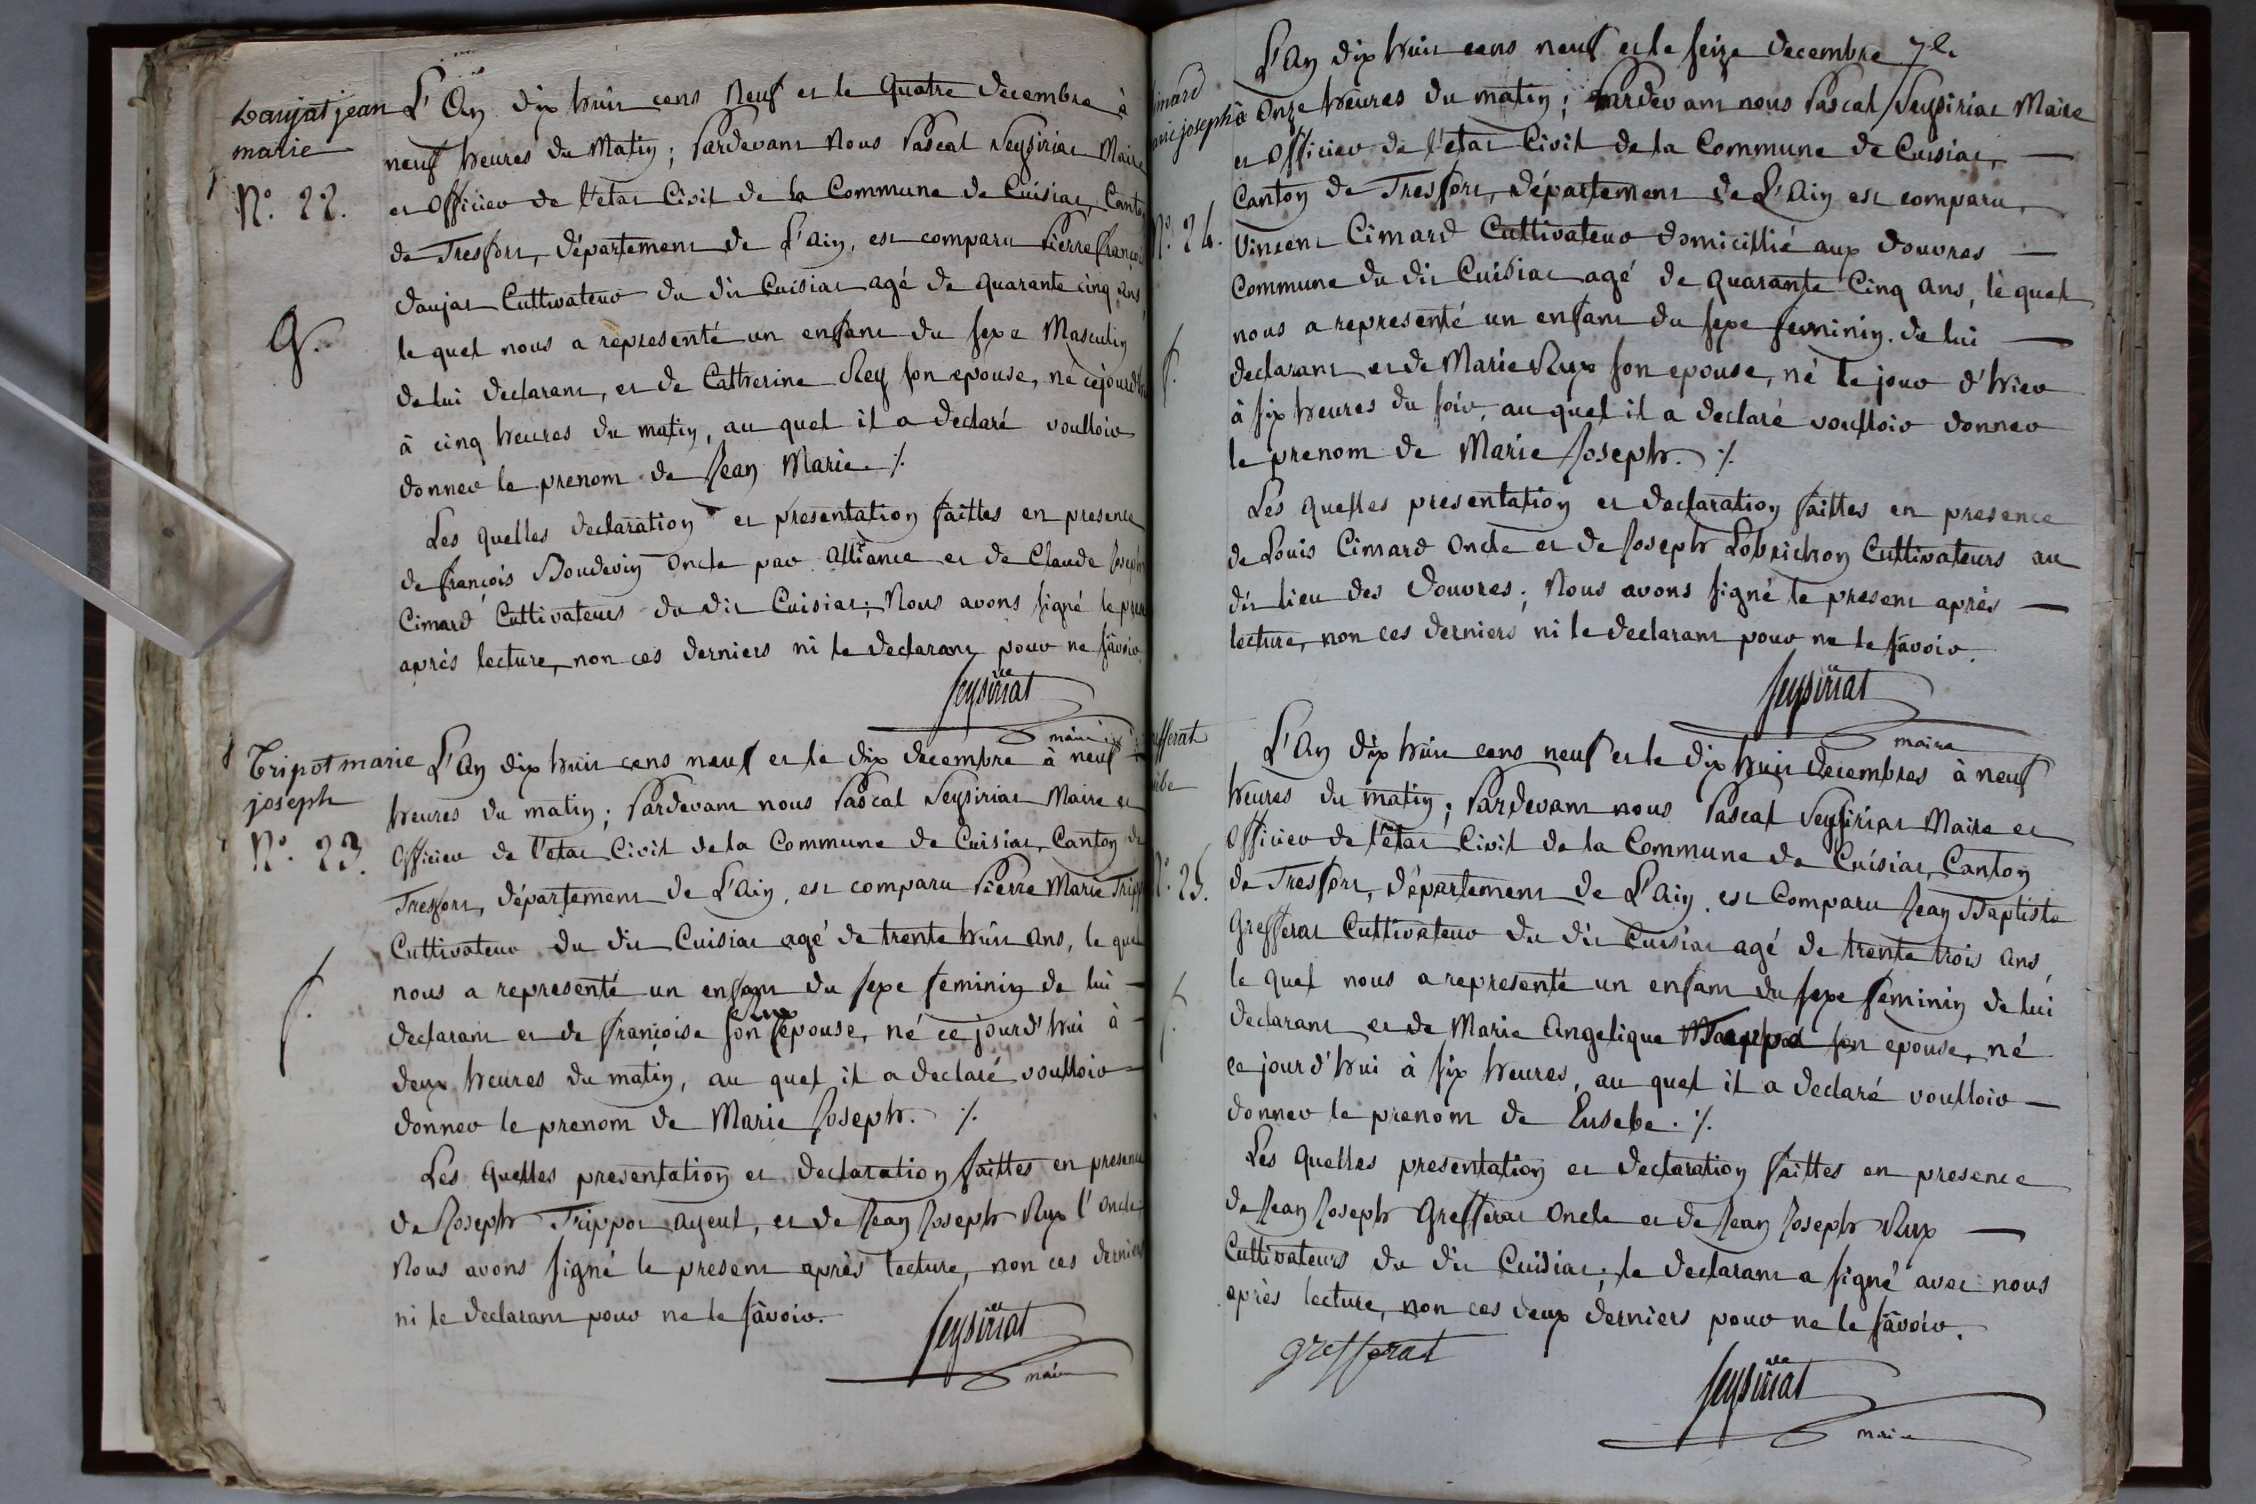 Daujat jean
marie
N.° 22.
G.
L'An dix huit cens Neuf et le Quatre decembre à
neuf heures du Matin ; Pardevant Nous Pascal Seysiriat Maire
et Officier de l'etat Civil de la Commune de Cuisiat, Canton
de Tresfort, département de L'Ain, est comparu Pierre françois
daujat Cultivateur du dit Cuisiat agé de quarante cinq ans,
le quel nous a représenté un enfant du sexe Masculin
de lui declarant, et de Catherine Rey son epouse, né cejourd'hui
à cinq heures du matin, au quel il a declaré voulloir
donner le prenom de Jean Marie ./.
Les quelles declaration et presentation faittes en presence
de françois Boudevin Oncle par alliance et de Claude Joseph
Cimard Cultivateurs du dit Cuisiat ; Nous avons signé le present
après lecture, non ces derniers ni le declarant pour ne savoir.
Seysiriat
maire
Tripot marie
joseph
N.° 23.
f.
L'An dix huit cens neuf et le dix decembre à neuf
heures du matin ; Pardevant nous Pascal Seysiriat Maire et
Officier de l'etat Civil de la Commune de Cuisiat, Canton de
Tresfort, département de L'Ain, est comparu Pierre Marie Tripp
Cultivateur du dit Cuisiat agé de trente huit ans, le quel
nous a representé un enfant du sexe feminin de lui
Rux
declarant et de françoise son epouse, né ce jourd'hui à
deux heures du matin, au quel il a declaré voulloir
donner le prenom de Marie Joseph. ./.
Les quelles presentation et declaration faittes en presence
de Joseph Trippot ayeul, et de Jean Joseph Rux l'oncle
Nous avons signé le present après lecture, non ces derniers
ni le declarant pour ne le savoir.
Seysiriat
maire
imard
arie joseph
N.° 24.
f.
L'An dix huit cens neuf et le seize decembre
à Onze heures du matin ; Pardevant nous Pascal Seysiriat Maire
et Officier de l'etat Civil de la Commune de Cuisiat,
Canton de Tresfort, département de L'Ain est comparu
Vincent Cimard Cultivateur domicillié aux douvres
Commune du dit Cuisiat agé de quarante Cinq ans, le quel
nous a representé un enfant du sexe feminin. de lui
declarant et de Marie Rux son epouse, né le jour d'hier
à six heures du soir, au quel il a declaré voulloir donner
le prenom de Marie Joseph. ./.
Les quelles presentation et declaration faittes en presence
de Louis Cimard Oncle et de Joseph Lobrichon Cultivateurs au
dit lieu des douvres ; Nous avons signé le present après
lecture, non ces derniers ni le declarant pour ne le savoir.
Seysiriat
maire
efferat
ebe
N.° 25.
f.
L'An dix huit cens neuf et le dix huit decembres à neuf
heures du matin ; Pardevant nous Pascal Seysiriat Maire et
Officier de l'état Civil de la Commune de Cuisiat, Canton
de Tresfort, département de L'Ain, est Comparu Jean Baptiste
Grefferat Cultivateur du dit Cuisiat agé de trente trois ans,
le quel nous a representé un enfant du sexe feminin de lui
declarant et de Marie Angelique son epouse, né
ce jourd'hui à six heures, au quel il a declaré voulloir
donner le prenom de Eusebe. ./.
Les quelles presentation et declaration faittes en presence
de Jean Joseph Grefferat Oncle et de Jean Joseph Rux
Cultivateurs du dit Cuisiat ; le declarant a signé avec nous
après lecture, non ces deux derniers pour ne le savoir.
grefferat
Seysiriat
maire